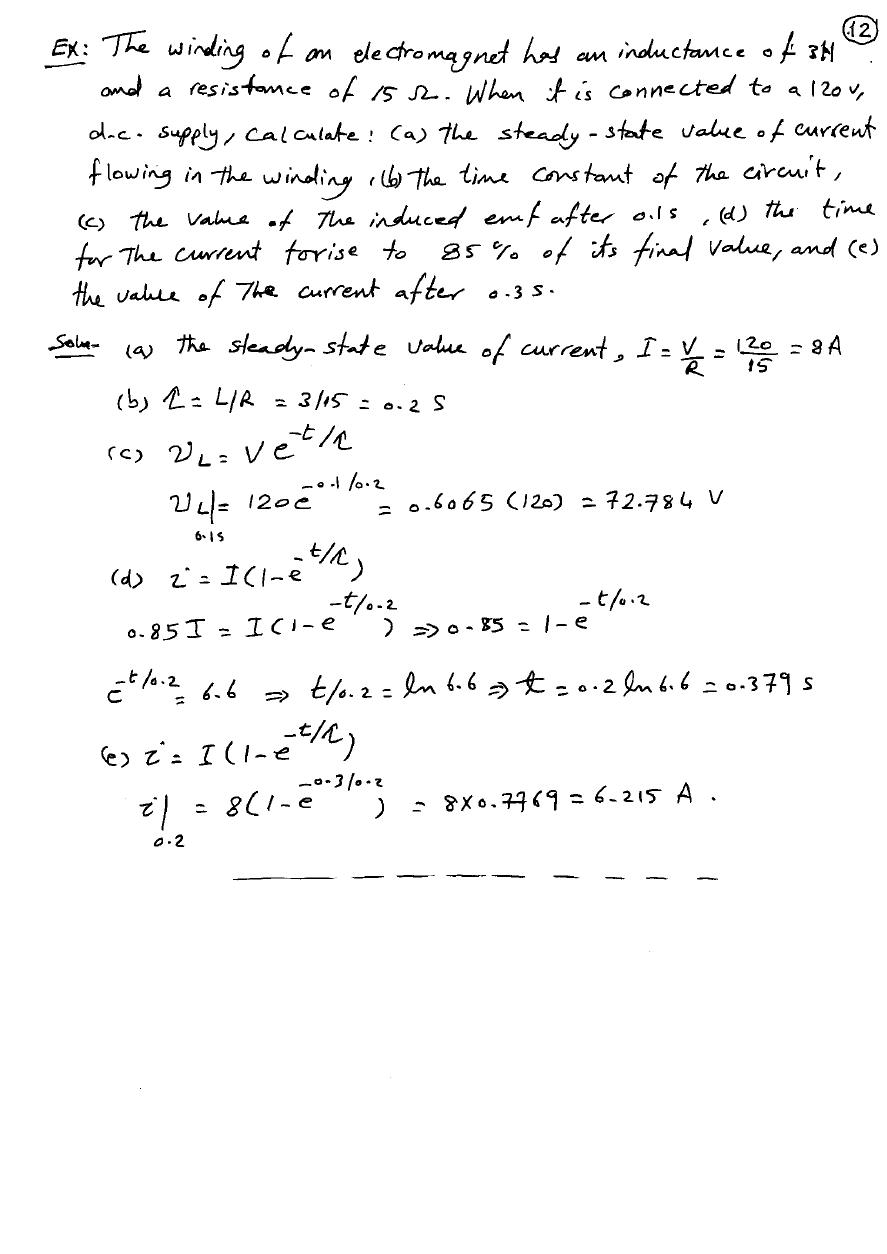 12
Ex: The winding of an electromagnet has an inductance of 3H
and a resistance of 15 Ω. When it is connected to a 120 v,
d.c. supply, calculate: (a) the steady-state value of current
flowing in the winding, (b) the time constant of the circuit,
(c) the value of the induced emf after 0.1 s, (d) the time
for the current to rise to 85 % of its final value, and (e)
the value of the current after 0.3 s.
Solu- (a) the steady-state value of current, I = V/R = 120/15 = 8 A
(b) τ = L/R = 3/15 = 0.2 S
(c) v_L = V e^(-t/τ)
v_L|0.1s = 120 e^(-0.1/0.2) = 0.6065 (120) = 72.784 V
(d) i = I(1-e^(-t/τ))
0.85 I = I(1-e^(-t/0.2)) ⇒ 0.85 = 1-e^(-t/0.2)
e^(-t/0.2) = 6.6 ⇒ t/0.2 = ln 6.6 ⇒ t = 0.2 ln 6.6 = 0.379 s
(e) i = I(1-e^(-t/τ))
i|0.2 = 8(1-e^(-0.3/0.2)) = 8×0.7769 = 6.215 A.